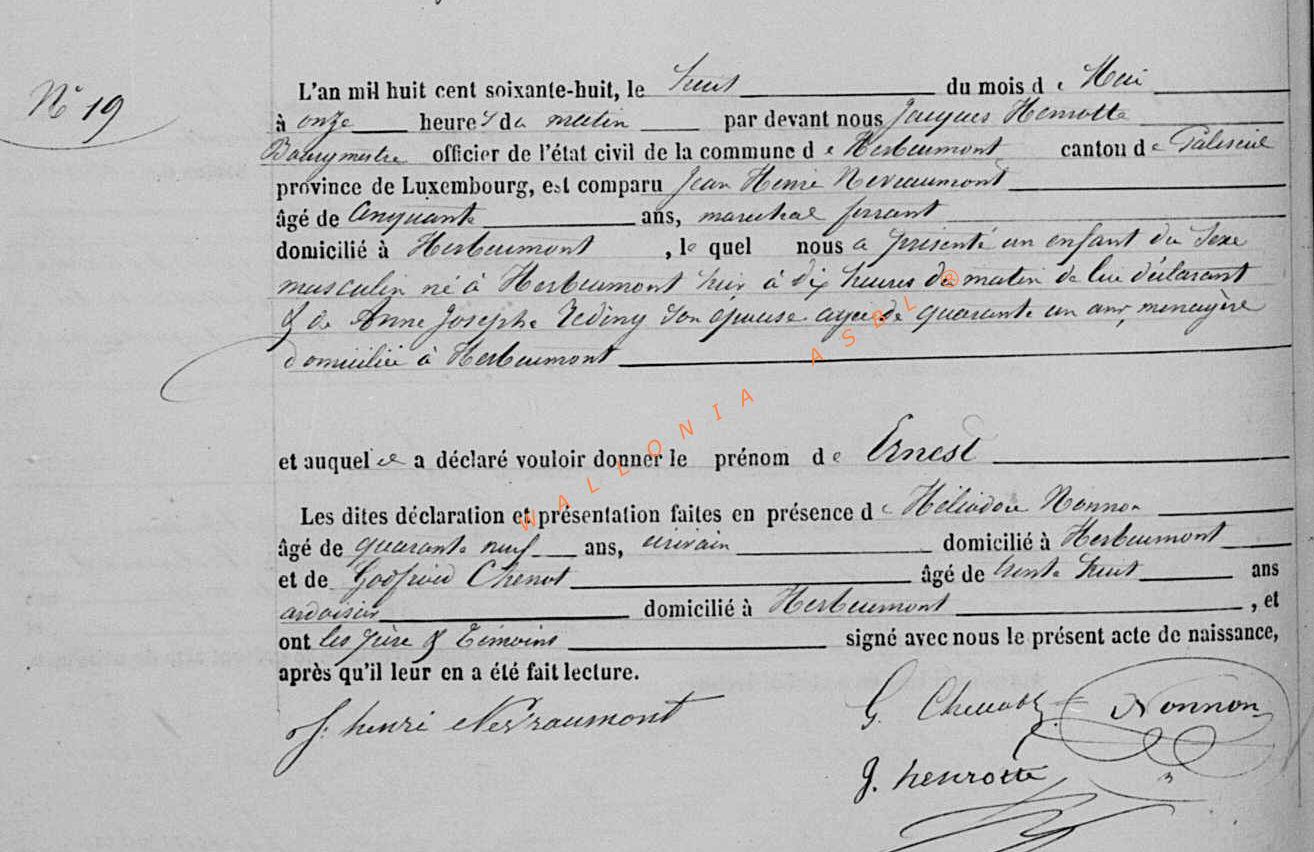 N° 19
L'an mil huit cent soixante-huit, le huit du mois de Mai
à onze heures du matin par devant nous Jacques Henrotte
Bourgmestre officier de l'état civil de la commune de Herbeumont canton de Paliseul
province de Luxembourg, est comparu Jean Henri Nevraumont
âgé de Cinquante ans, marechal ferrant
domicilié à Herbeumont, le quel nous a présenté un enfant du Sexe
masculin né à Herbeumont hier à dix heures du matin de lui déclarant
& de Anne Josephe Zediny son épouse agée de quarante un ans, menagère
domiciliée à Herbeumont
et auquel il a déclaré vouloir donner le prénom de Ernest
Les dites déclaration et présentation faites en présence de Héliodore Nonnon
âgé de quarante neuf ans, écrivain domicilié à Herbeumont
et de Godfroid Chenot âgé de trente huit ans
ardoisier domicilié à Herbeumont, et
ont les père & Témoins signé avec nous le présent acte de naissance,
après qu'il leur en a été fait lecture.
J. henri Nevraumont G. Chenot Nonnon
J. henrotte
WALLONIA ASBL ®